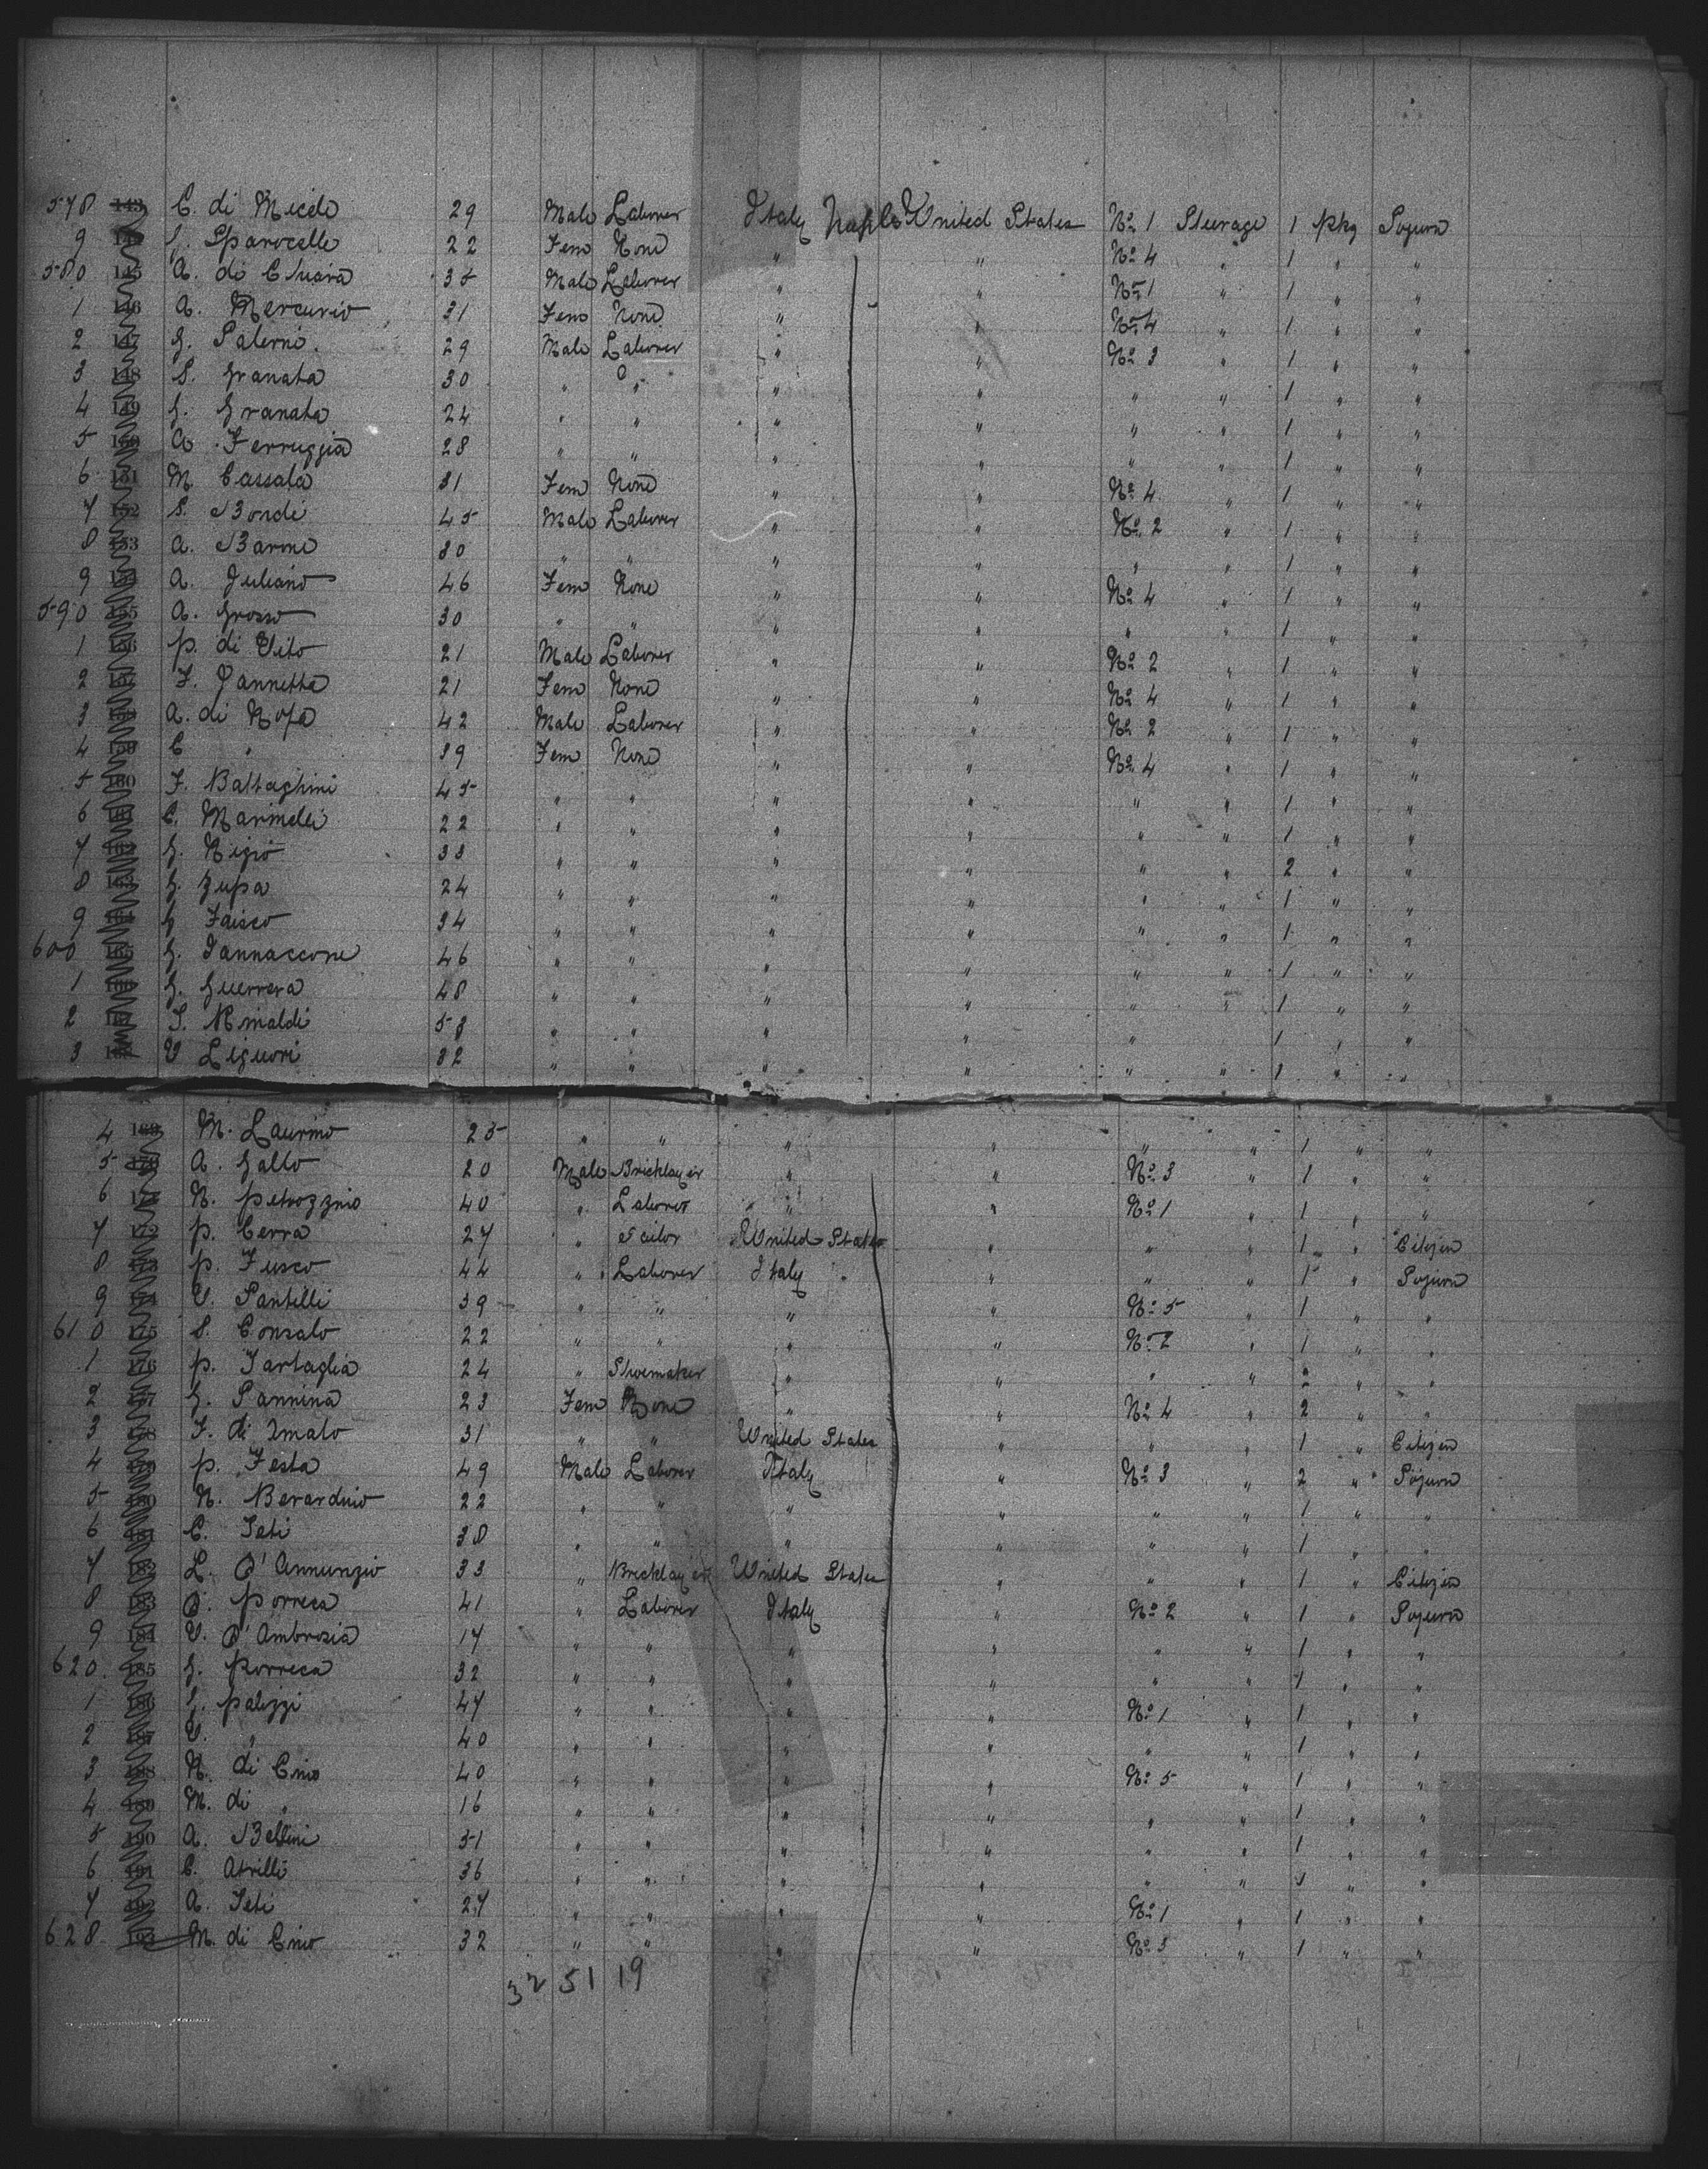 578 143 C. di Micelo 29 Male Laborer Italy Naples United States No 1 Steerage 1 pkg Sojurn
9 Sparocelle 22 Fem None " " No 4 " 1 " "
580 145 A. di Chiara 35 Male Laborer " " No 1 " 1 " "
1 146 A. Mercurio 31 Fem None " " No 4 " 1 " "
2 147 G. Palerno 29 Male Laborer " " No 3 " 1 " "
3 148 S. Granata 30 " " " " " " 1 " "
4 149 G. Granata 24 " " " " " " 1 " "
5 150 A. Ferruggia 28 " " " " " " 1 " "
6 151 M. Cassala 31 Fem None " " No 4 " 1 " "
7 152 S. Bordi 45 Male Laborer " " No 2 " 1 " "
8 153 A. Barone 30 " " " " " " 1 " "
9 154 A. Juliano 46 Fem None " " No 4 " 1 " "
590 155 A. Grosso 30 " " " " " " 1 " "
1 156 P. di Vito 21 Male Laborer " " No 2 " 1 " "
2 157 F. Jannetta 21 Fem None " " No 4 " 1 " "
3 A. di Nofa 42 Male Laborer " " No 2 " 1 " "
4 159 C " 39 Fem None " " No 4 " 1 " "
5 160 F. Battaglini 45 " " " " " " 1 " "
6 C. Marinelli 22 " " " " " " 1 " "
7 162 G. Nigro 33 " " " " " " 2 " "
8 163 G. Zupa 24 " " " " " " 1 " "
9 164 G Faisco 34 " " " " " " 1 " "
600 165 G. Iannaccone 46 " " " " " " 1 " "
1 166 G. Guerrera 48 " " " " " " 1 " "
2 S. Rinaldi 58 " " " " " " 1 " "
3 V Liguori 32 " " " " " " 1 " "
4 169 M. Laurino 25 " " " " " " 1 " "
5 170 A. Gallo 20 Male Bricklayer " " No 3 " 1 " "
6 N. Petrozzino 40 " Laborer " " No 1 " 1 " "
7 172 P. Cerra 27 " Tailor United States " " " 1 " Citizen
8 173 P. Fusco 44 " Laborer Italy " " " 1 " Sojurn
9 174 V. Santilli 39 " " " " No 5 " 1 " "
610 175 S. Consalo 22 " " " " No 2 " 1 " "
1 176 P. Tartaglia 24 " Shoemaker " " " " 2 " "
2 177 G. Pannina 23 Fem None " " No 4 " 2 " "
3 178 F. di Amato 31 " " United States " " " 1 " Citizen
4 179 P. Festa 49 Male Laborer Italy " No 3 " 2 " Sojurn
5 180 N. Berardino 22 " " " " " " 1 " "
6 181 C. Teti 38 " " " " " " 1 " "
7 182 L. D'Annunzio 33 " Bricklayer United States " " " 1 " Citizen
8 183 D. Porreca 41 " Laborer Italy " No 2 " 1 " Sojurn
9 184 V. D'Ambrosia 17 " " " " " " 1 " "
620 185 G. Porreca 32 " " " " " " 1 " "
1 186 G. Palizzi 47 " " " " No 1 " 1 " "
2 187 V. " 40 " " " " " " 1 " "
3 188 N. di Cinio 40 " " " " No 5 " 1 " "
4 189 M. di " 16 " " " " " " 1 " "
5 190 A. Bellini 51 " " " " " " 1 " "
6 191 C. Atrilli 36 " " " " " " 1 " "
7 192 A. Teti 27 " " " " No 1 " 1 " "
628 193 M. di Cinio 32 " " " " No 5 " 1 " "
32 51 19